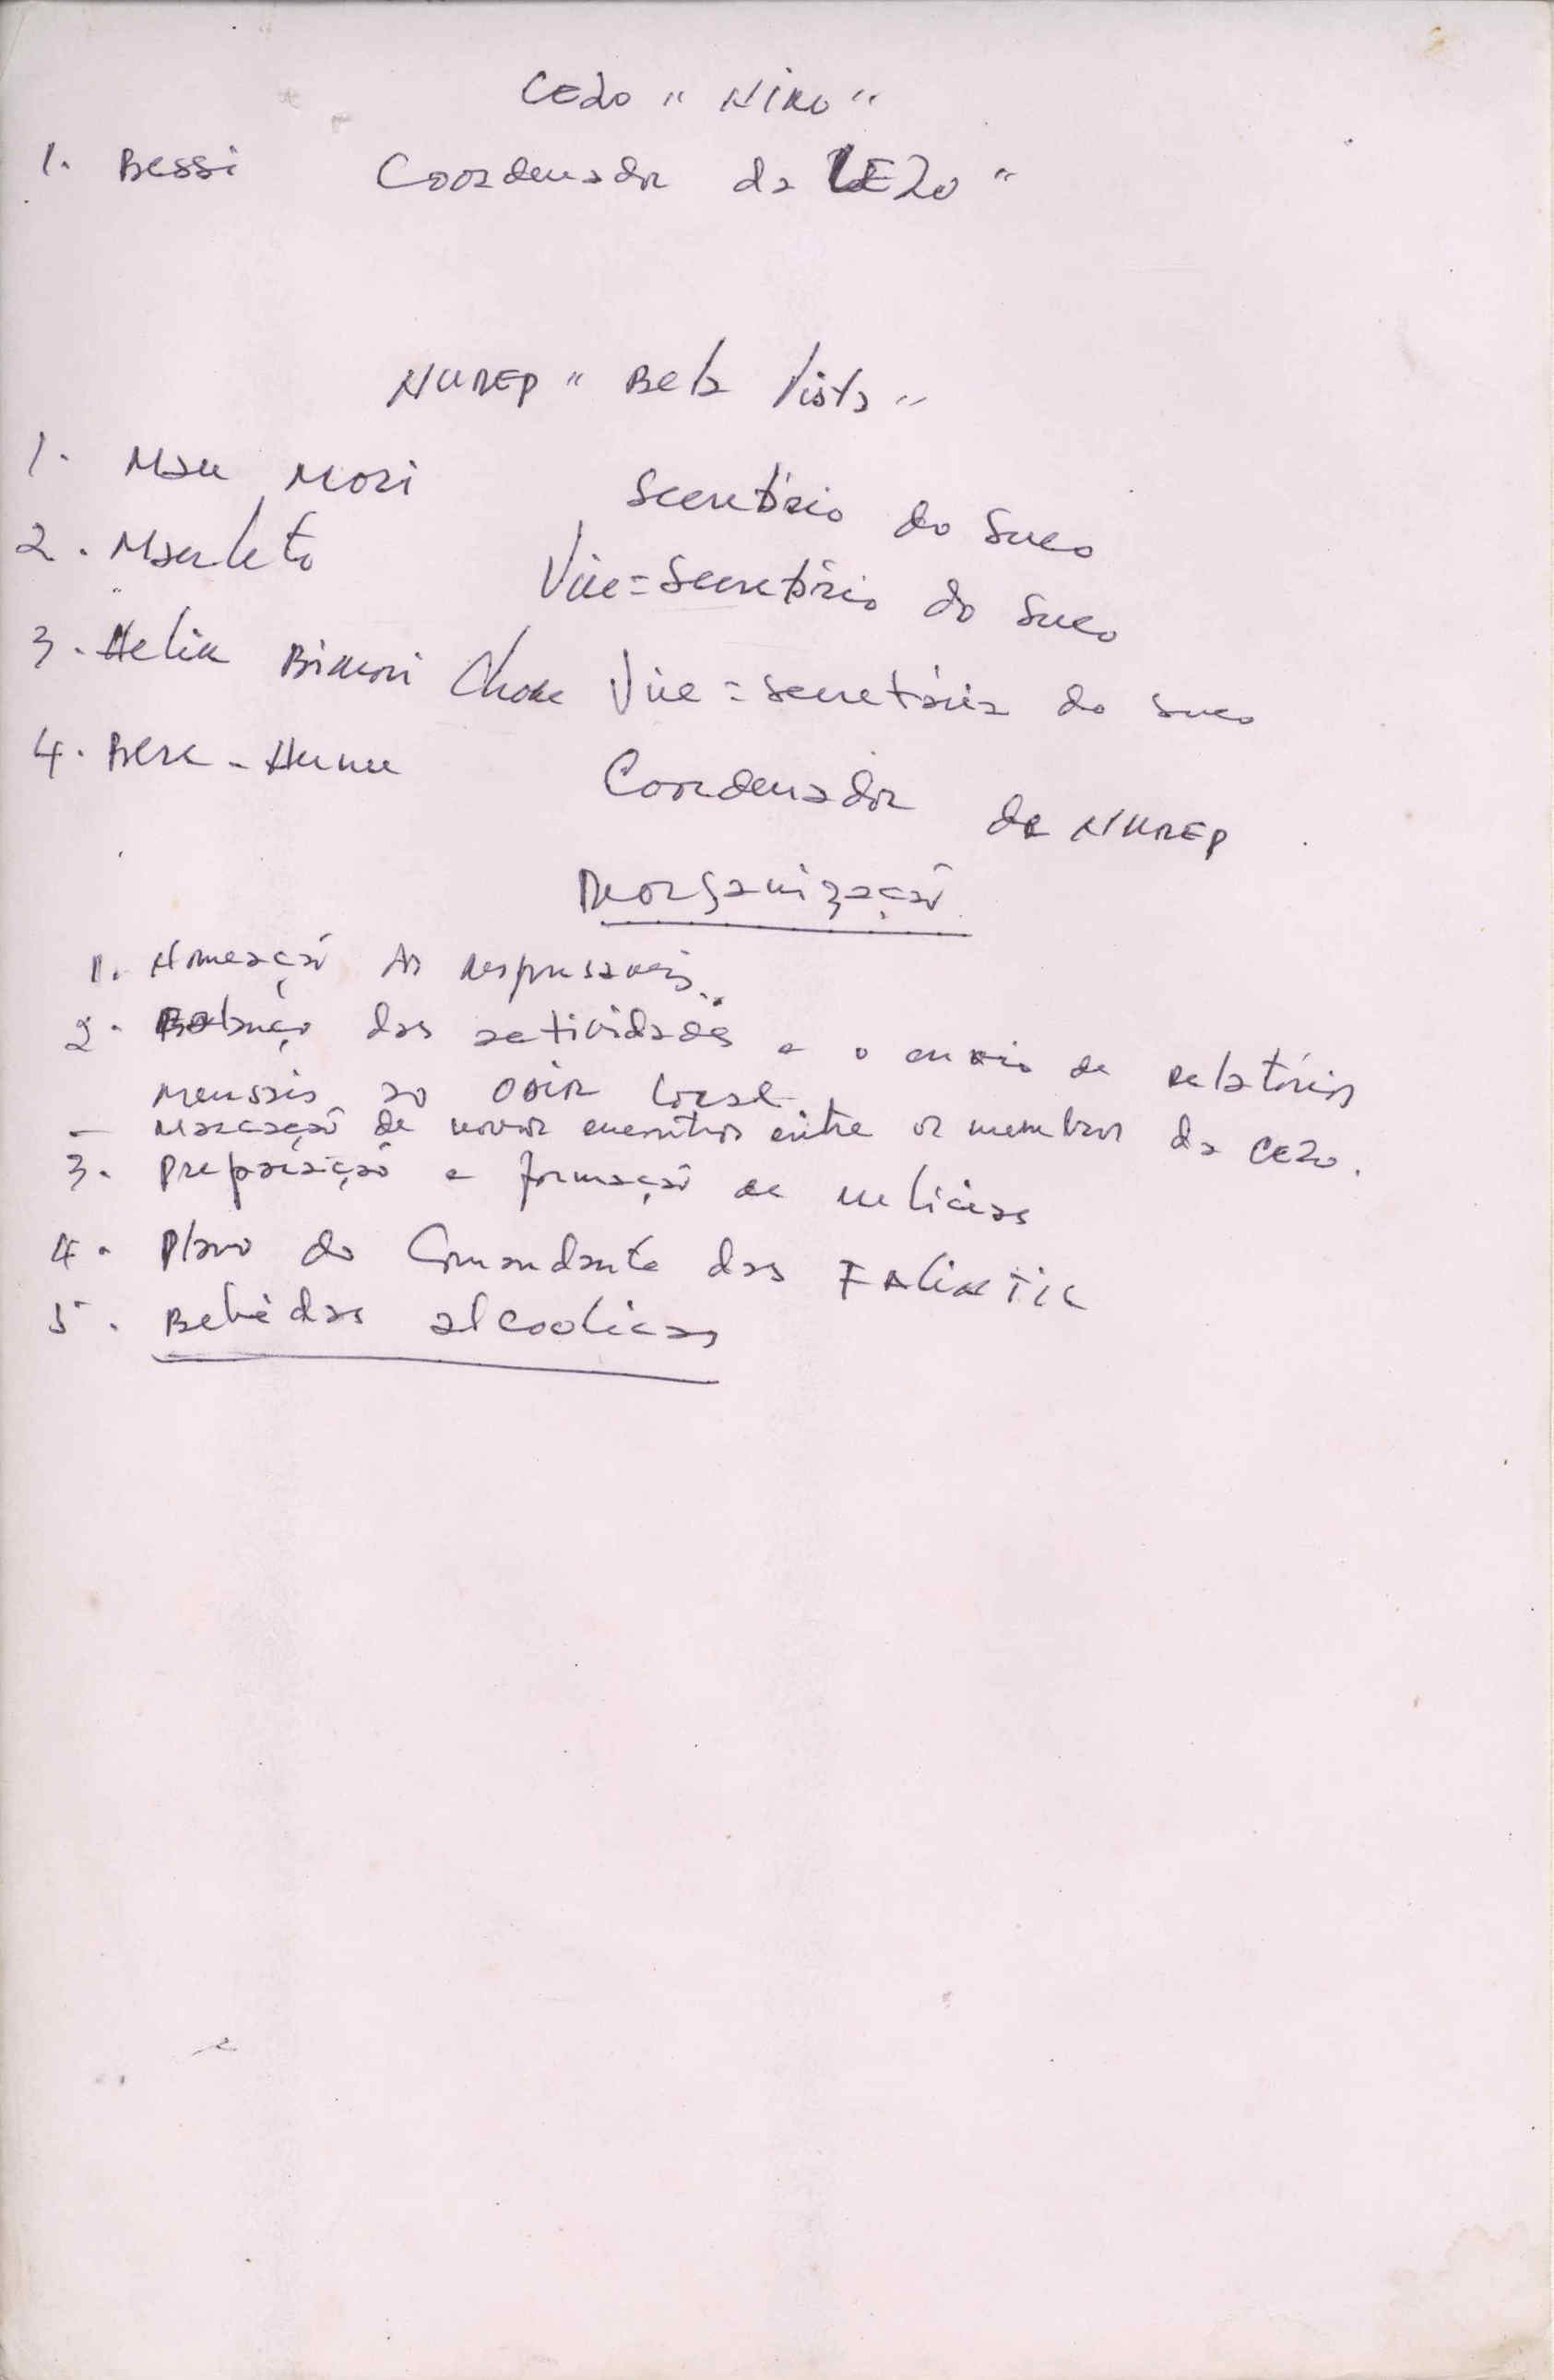 CEZO "NIKO"
1. Bessi Coordenador da CEZO"
NUREP "Bela Vista"
1. Mau Mori Secretário do Suco
2. Mauleto Vice=Secretário do Suco
3. Bimori Vice=Secretária do Suco
4. Bere-Hunu Coordenador da NUREP
Reorganização
1. Nomeação dos responsaveis.
2. Balanço das actividades e o envio de relatórios
mensais ao local
- Marcação de novos encontros entre os membros da CEZO.
3. Preparação e formação de milicias
4. Plano do Comandante das FALINTIL
5. Bebidas alcoolicas